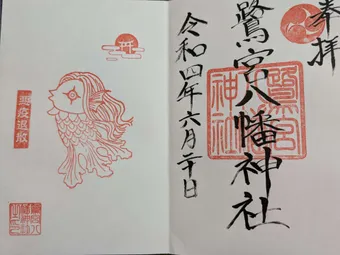 奉拝
鷺宮八幡神社
鷺宮
神社
令和四年六月二十日
祈
疫退散